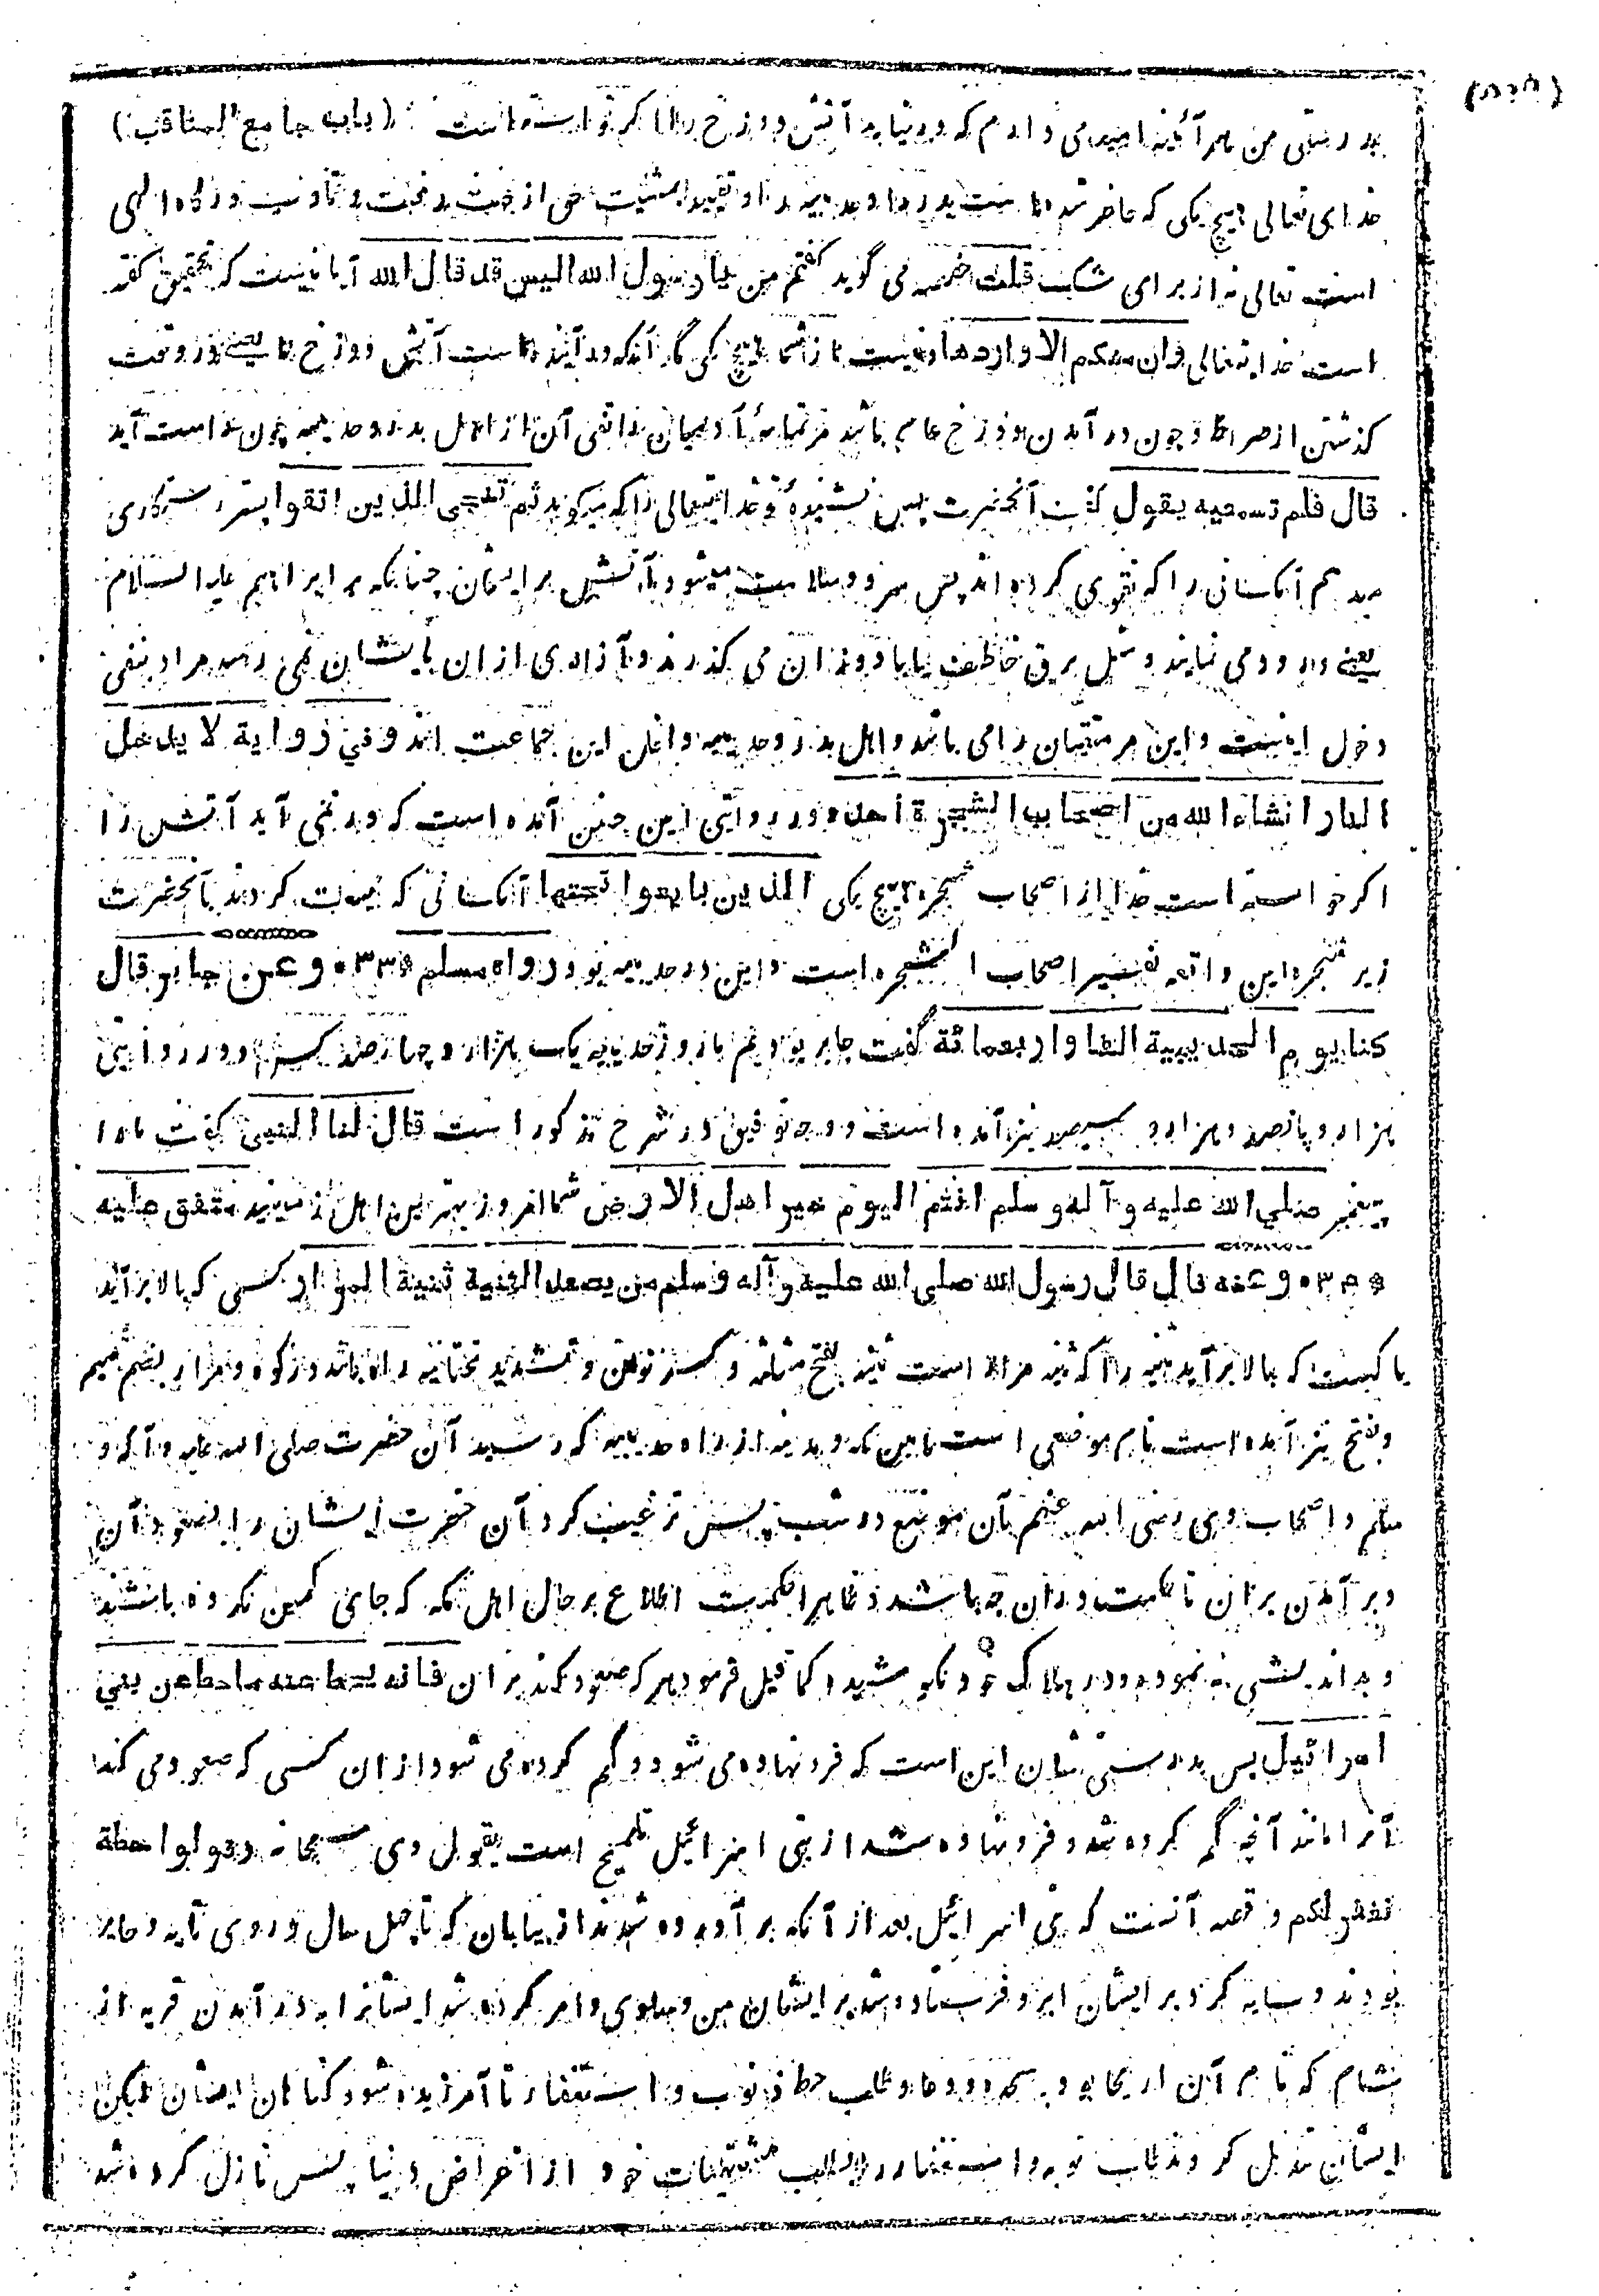 بدرستی من هر آئینه امید می دارم که در نیاید آتش دوزخ را اگر خواسته است (باب جامع المناقب)
خدای تعالی هیچ یکی که حاضر شده است بدر را و حدیبیه را و تقیید بمشیت حق از جهت و تادب در کاه الهی
است تعالی نه از برای شک قلت حفصه می گوید گفتم من یا رسول الله الیس قد قال الله آیا نیست که تحقیق گفته
است خدایتعالی وان منکم الا واردها و نیست از شما هیچ یکی مگر آنکه در آینده است آتش دوزخ را یعنے در وقت
گذشتن از صراط و چون در آمدن دوزخ عام باشد نفی آن از اهل بدر و حدیبیه چون راست آید
قال فلم تسمعیه یقول گفت آنحضرت پس نشنیده خدایتعالی را که میگوید ثم ننجی الذین اتقوا پستر رستگاری
میدهم آنکسانی را که تقوی کرده اند پس سرد و سلامت میشود آتش بر ایشان چنانکه بر ابراهیم علیه السلام
یعنے ورود می نمایند و مثل برق خاطف یا باد وزان می گذرند و آزاری از ان بایشان نمی رسد مراد بنفی
دخول اینست و این مر متقیان را می باشد و اهل بدر و حدیبیه داخل این جماعت اند وفی روایة لا یدخل
النار انشاء الله من اصحاب الشجرة احد و در روایتی این چنین آمده است که در نمی آید آتش را
اگر خواسته است خدا از اصحاب شجره هیچ یکی الذین بایعوا تحتها آنکسانی که بیعت کردند بآنحضرت
زیر شجره این واقعه تفسیر اصحاب الشجره است و این در حدیبیه بود رواه مسلم ۵۳۳۰ وعن جابر قال
کنا یوم الحدیبیة الفا واربعمائة گفت جابر بودیم ما روز حدیبیه یک هزار و چهار صد کس و در روایتی
هزار و پانصد و هزار و سیصد نیز آمده است و وجه توفیق در شرح مذکور است قال لنا النبی گفت ما را
پیغمبر صلی الله علیه وآله وسلم انتم الیوم خیر اهل الارض شما امروز بهترین اهل زمینید متفق علیه
۵۳۳۰ وعنه قال قال رسول الله صلی الله علیه وآله وسلم من یصعد الثنیة ثنیة المرار کسی که بالا بر آید
یا کیست که بالا بر آید ثنیه را که ثنیه مرار است ثنیه بفتح مثلثه و کسر نون و تشدید تحتانیه راه باشد در کوه و مرار بضم میم
و بفتح نیز آمده است نام موضعی است مابین مکه و مدینه از راه حدیبیه که رسید آن حضرت صلی الله علیه وآله و
سلم و اصحاب وی رضی الله عنهم بآن موضع در شب پس ترغیب کرد آن حضرت ایشان را بصعود آن
و بر آمدن بران تا حکمت دران چه باشد و ظاهرا حکمت اطلاع بر حال اهل مکه که جای کمین نکرده باشند
فرمود هر که صعود کند بران فانه یحط عنه ما حط عن بنی
اسرائیل پس بدرستی شان این است که فرو نهاده می شود و کم کرده می شود از ان کسی که صعود می کند
آنرا مانند آنچه کم کرده شد و فرو نهاده شد از بنی اسرائیل تلمیح است بقول وی سبحانه وقولوا حطة
نغفر لکم و قصه آنست که بنی اسرائیل بعد از آنکه بر آورده شدند از بیابان که تا چهل سال در وی تایه و حایر
بودند و سایه کرد بر ایشان ابر و فرستاده شد بر ایشان من و سلوی و امر کرده شد ایشانرا به در آمدن قریه از
شام که نام آن اریحا بود به سجده و دعا و طلب حط ذنوب و استغفار تا آمرزیده شود گناهان ایشان لیکن
ایشان تبدیل کردند طلب توبه و استغفار را بطلب مشتهیات خود از اغراض دنیا پس نازل کرده شد